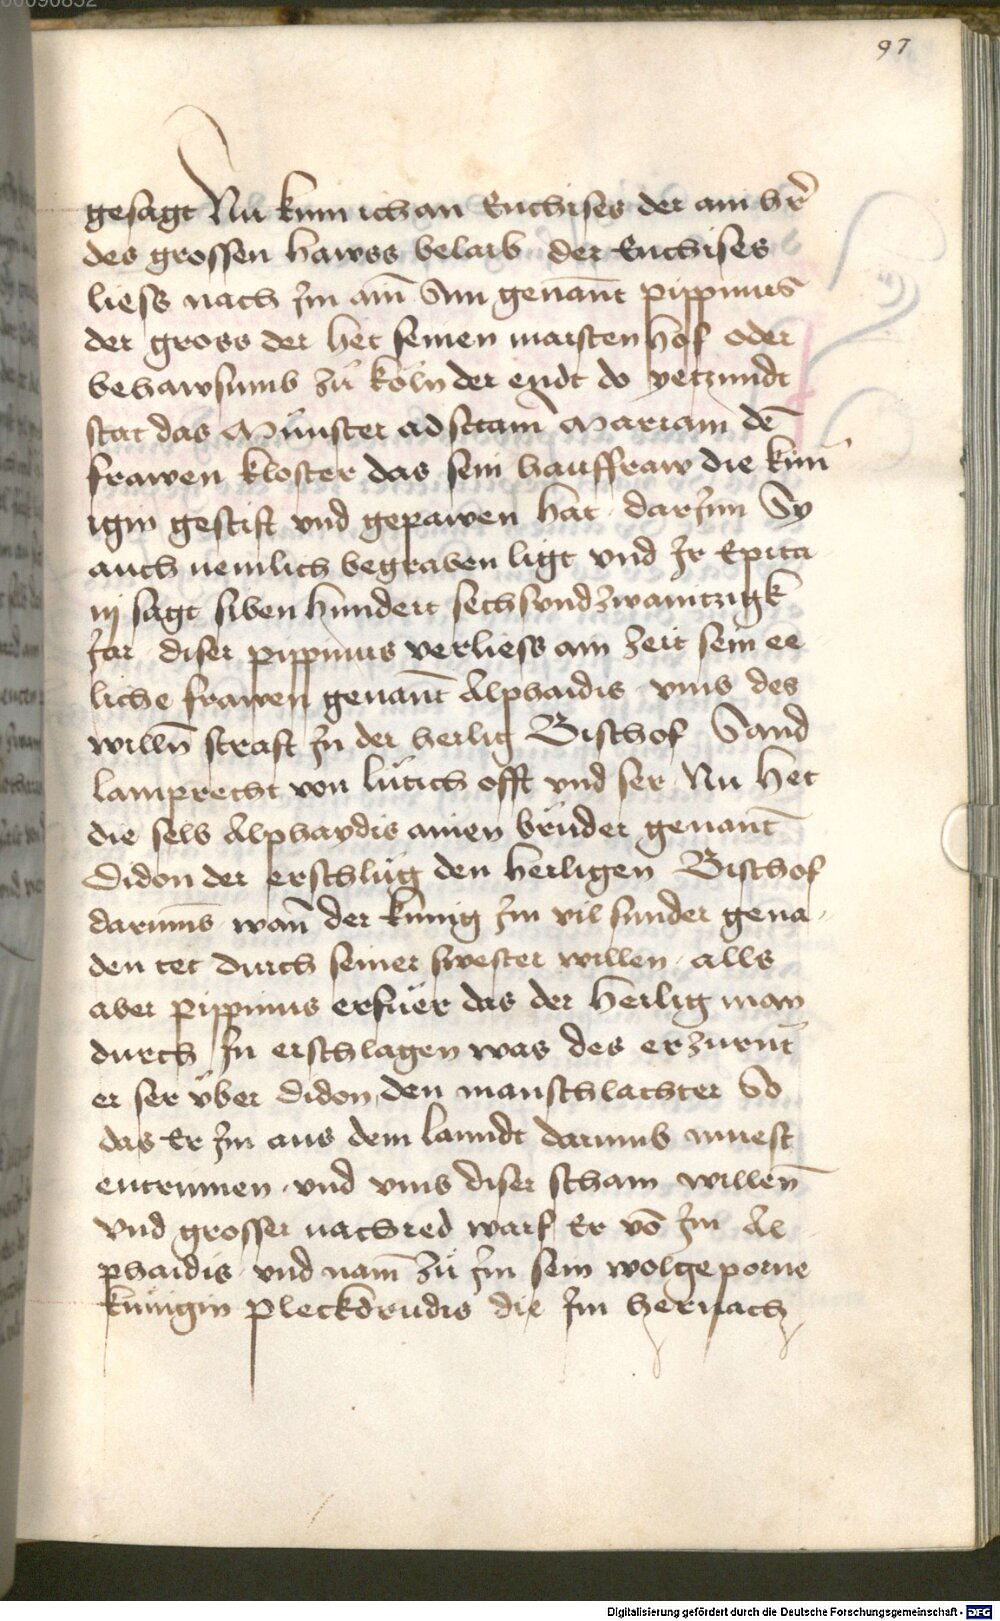 97
gesagt Nu kum ich an Enchises der ain hr̄
des grossen hawss belaib der Enchises
liess nach Jm ain̄ Sun genan̄t pippinus
der gross der het seinen maisten hof oder
behawsumb zu köln der endt do yetzundt
stat das Münster ad sctam̄ Mariam dē
frawen kloster das sein hauffraw die kün̄
igin gestift vnd gepawen hat darJnn Sy
auch nemlich begraben ligt vnd Jr Epita
vij sagt siben hundert sechsvndzwaintzigk
Jar diser pippinus verliess ain zeit sein ee
liche frawen genan̄t Alphaidis vmb des
willn̄ straft Jn der heilig Bischof Sand
lamprecht von lüttich offt vnd ser Nu het
die selb Alphaydis ainen brüder genan̄t
Didon der erschlüg den heiligen Bischof
darumb wan̄ der künig Jm vil sunder gena
den tet durch seiner swester willen alls
aber pippinus erfuer das der heilig man
durch Jn erschlagen was des erzurnt
er ser über Didon den manschlachter So
das Er Jm aus dem lanndt darumb muest
entrinnen vnd vmb diser scham willen̄
vnd grosser nachred warf Er vō Jm Al
phaidis vnd nam̄ zü Jm sein wolgeporne
künigin pleckdrudis die Jm hernach
Digitalisierung gefördert durch die Deutsche Forschungsgemeinschaft - DFG